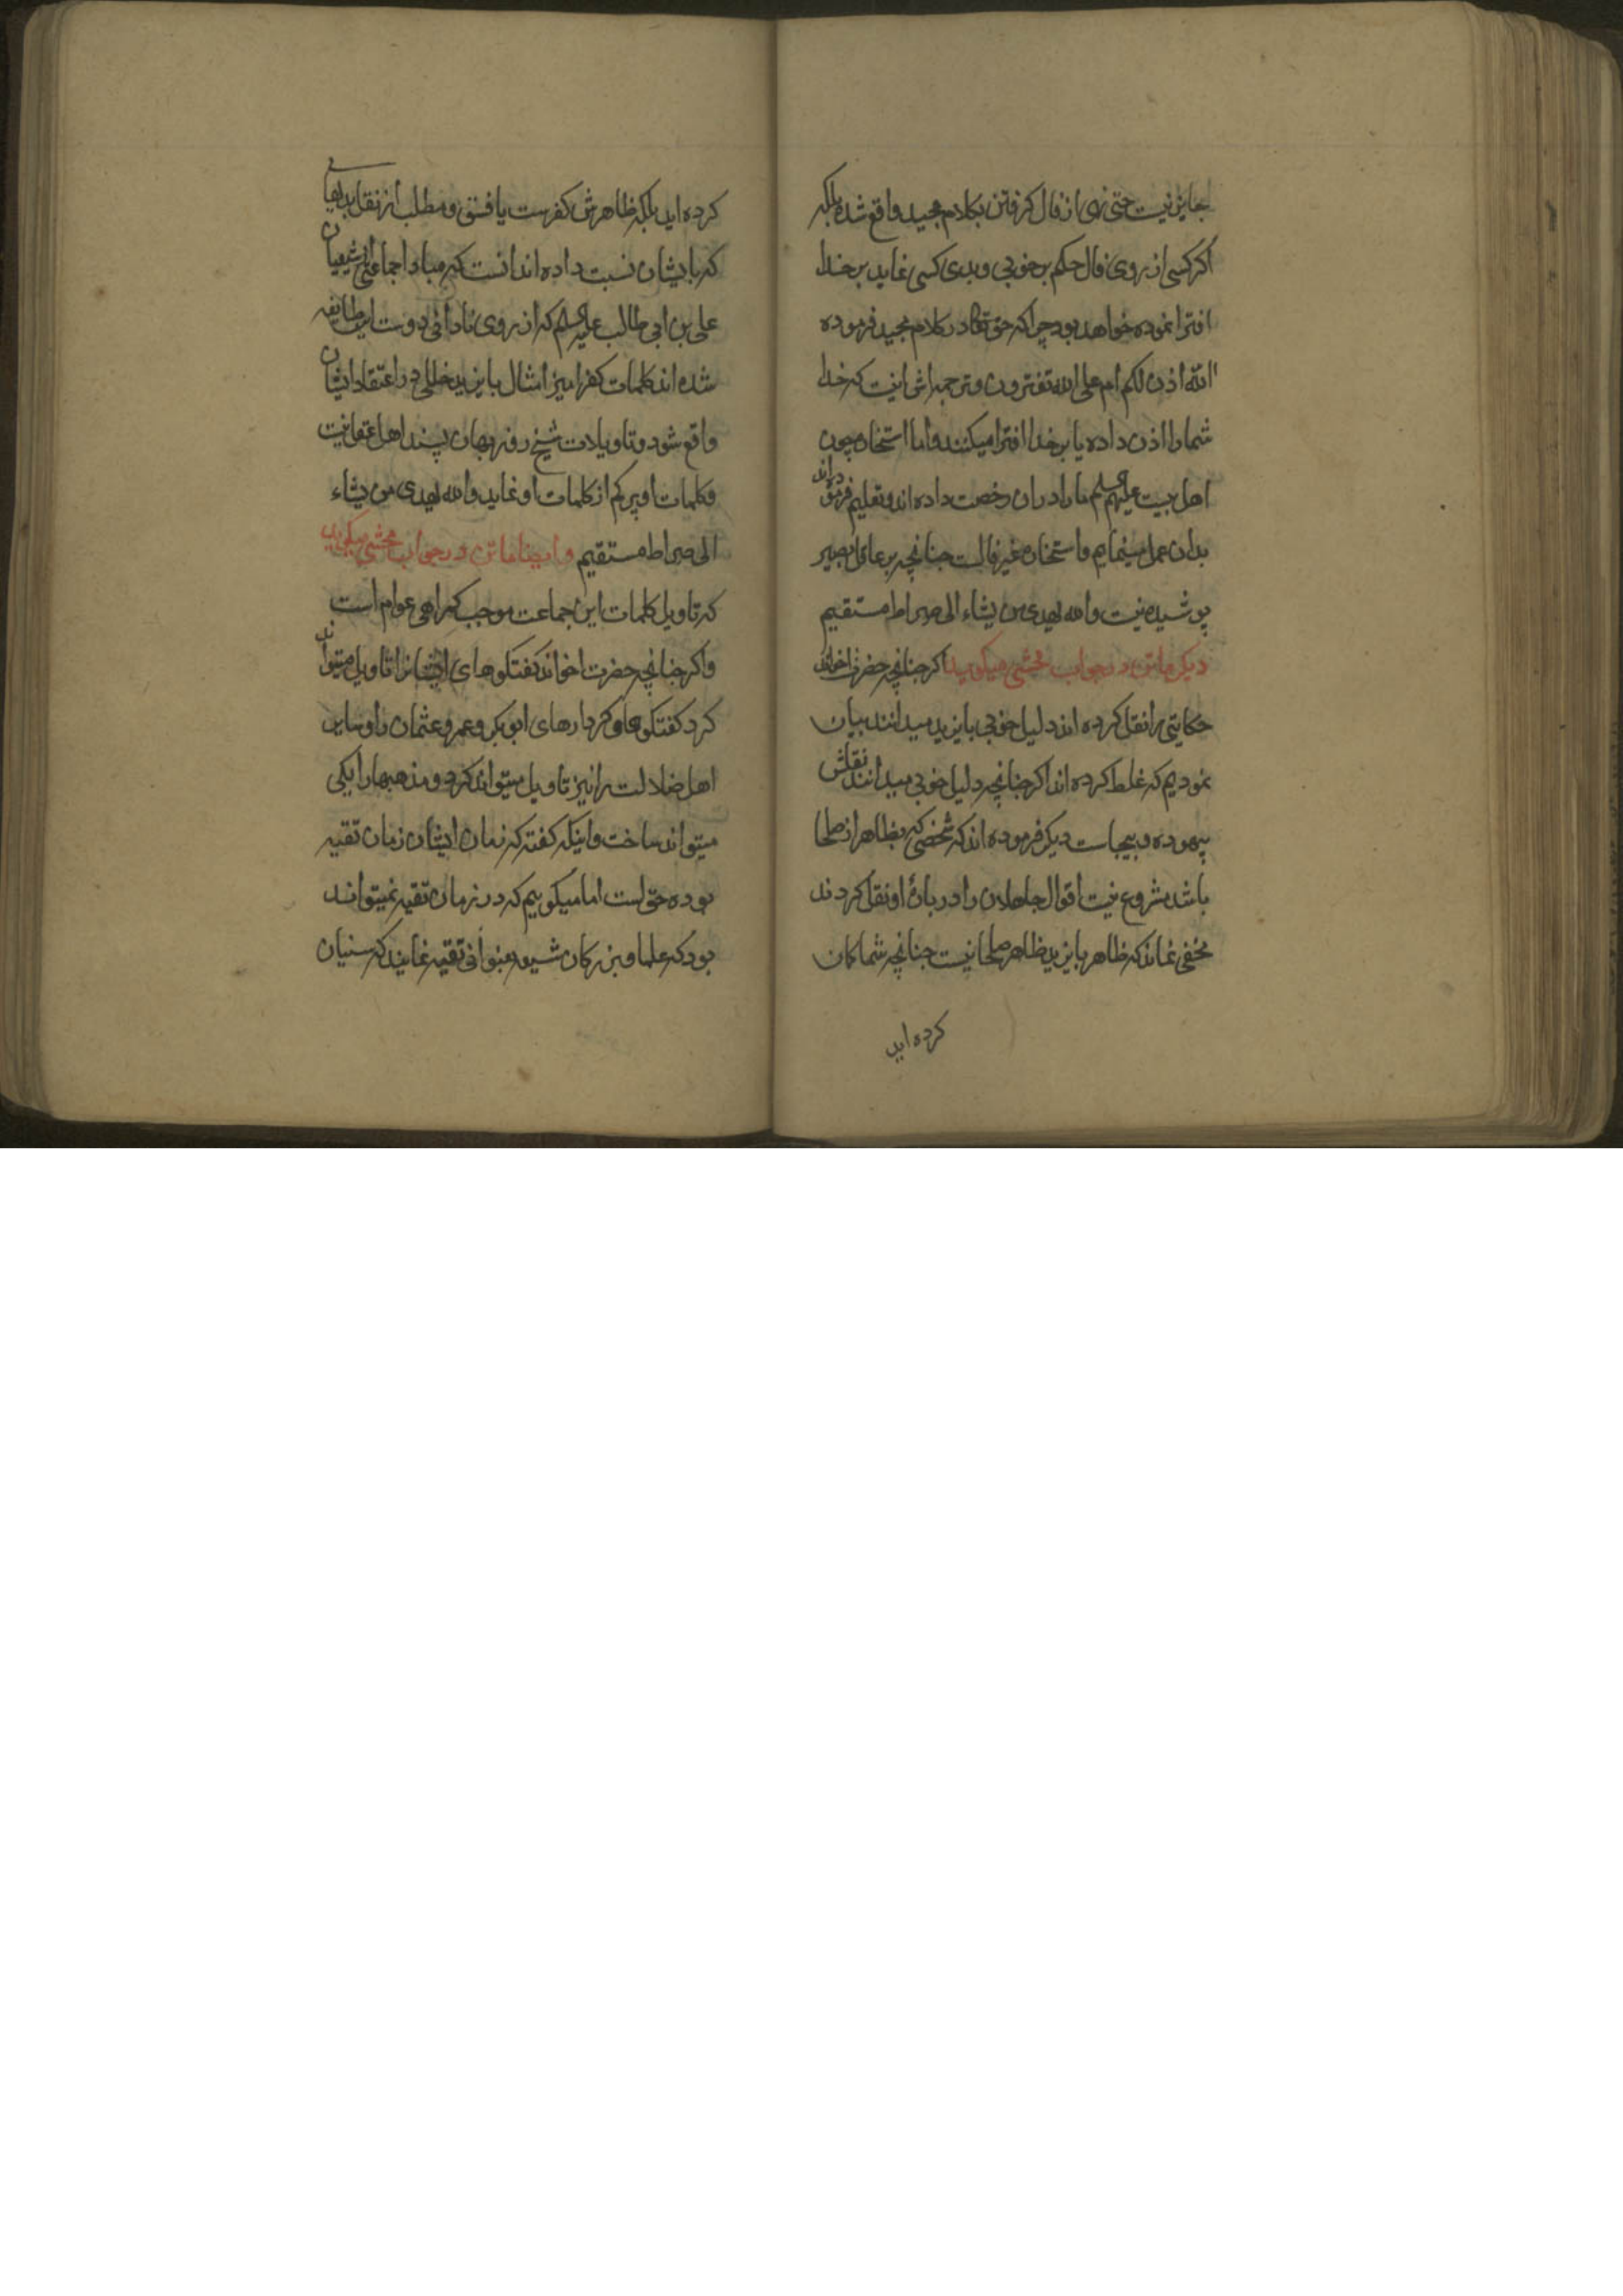 جایز نیست حتی نهی از فال کرفتن بکلام مجید واقع شده بلکه
اکر کسی از روی فال حکم بر خوبی و بدی کسی نماید بر خدا
افترا نموده خواهد بود چرا که حق تعالی در کلام مجید فرموده
ءالله اذن لکم ام علی الله تفترون و ترجمه اش اینست که خدا
شما را اذن داده یا بر خدا افترا میکنند و اما استخاره چون
اهل بیت علیهم السلم ما را در ان رخصت داده اند و تعلیم فرموده اند
بدان عمل مینمایم و استخاره غیر فالست جنانچه بر عاقل بصیر
پوشیده نیست والله یهدی من یشاء الی صراط مستقیم
دیکر ماتن در جواب محشی میکوید اکر جنانچه حضرت اخوند
حکایتی را نقل کرده اند دلیل خوبی بایزید میدانند بیان
نمودیم که غلط کرده اند اکر جنانچه دلیل خوبی میدانند نقلش
بیهوده و بیجاست دیکر فرموده اند که شخصی که بظاهر از صلحا
باشد مشروع نیست اقوال جاهلان را در بارهٔ او نقل کردند
مخفی نماند که ظاهر بایزید ظاهر صلحا نیست جنانچه شما کمان
کرده اید
کرده اید بلکه ظاهرش کفرست یا فسق و مطلب از نقل بدیهائی
که بایشان نسبت داده اند انست که مبادا جماعتی از شیعیان
علی بن ابی طالب علیه السلم که از روی نادانی دوست این طایفه
شده اند کلمات کفر امیز امثال بایزید خللی در اعتقاد ایشان
واقع شود و تاویلات شیخ روزبهان پسند اهل عقل نیست
و کلمات او پر کم از کلمات او نماید والله یهدی من یشاء
الی صراط مستقیم و ایضا ماتن در جواب محشی میکوید
که تاویل کلمات این جماعت موجب کمراهی عوام است
و اکر جنانچه حضرت اخوند کفتکوهای ایشانرا تاویل میتواند
کرد کفتکوها و کردارهای ابوبکر و عمر و عثمان را و سایر
اهل ضلالت را نیز تاویل میتواند کرد و مذهبها را یکی
میتواند ساخت و اینکه کفته که زمان ایشان زمان تقیه
بوده حق است اما میکوییم که در زمان تقیه نمیتواند
بود که علما و بزرکان شیعه بنوعی تقیه نمایند که سنیان